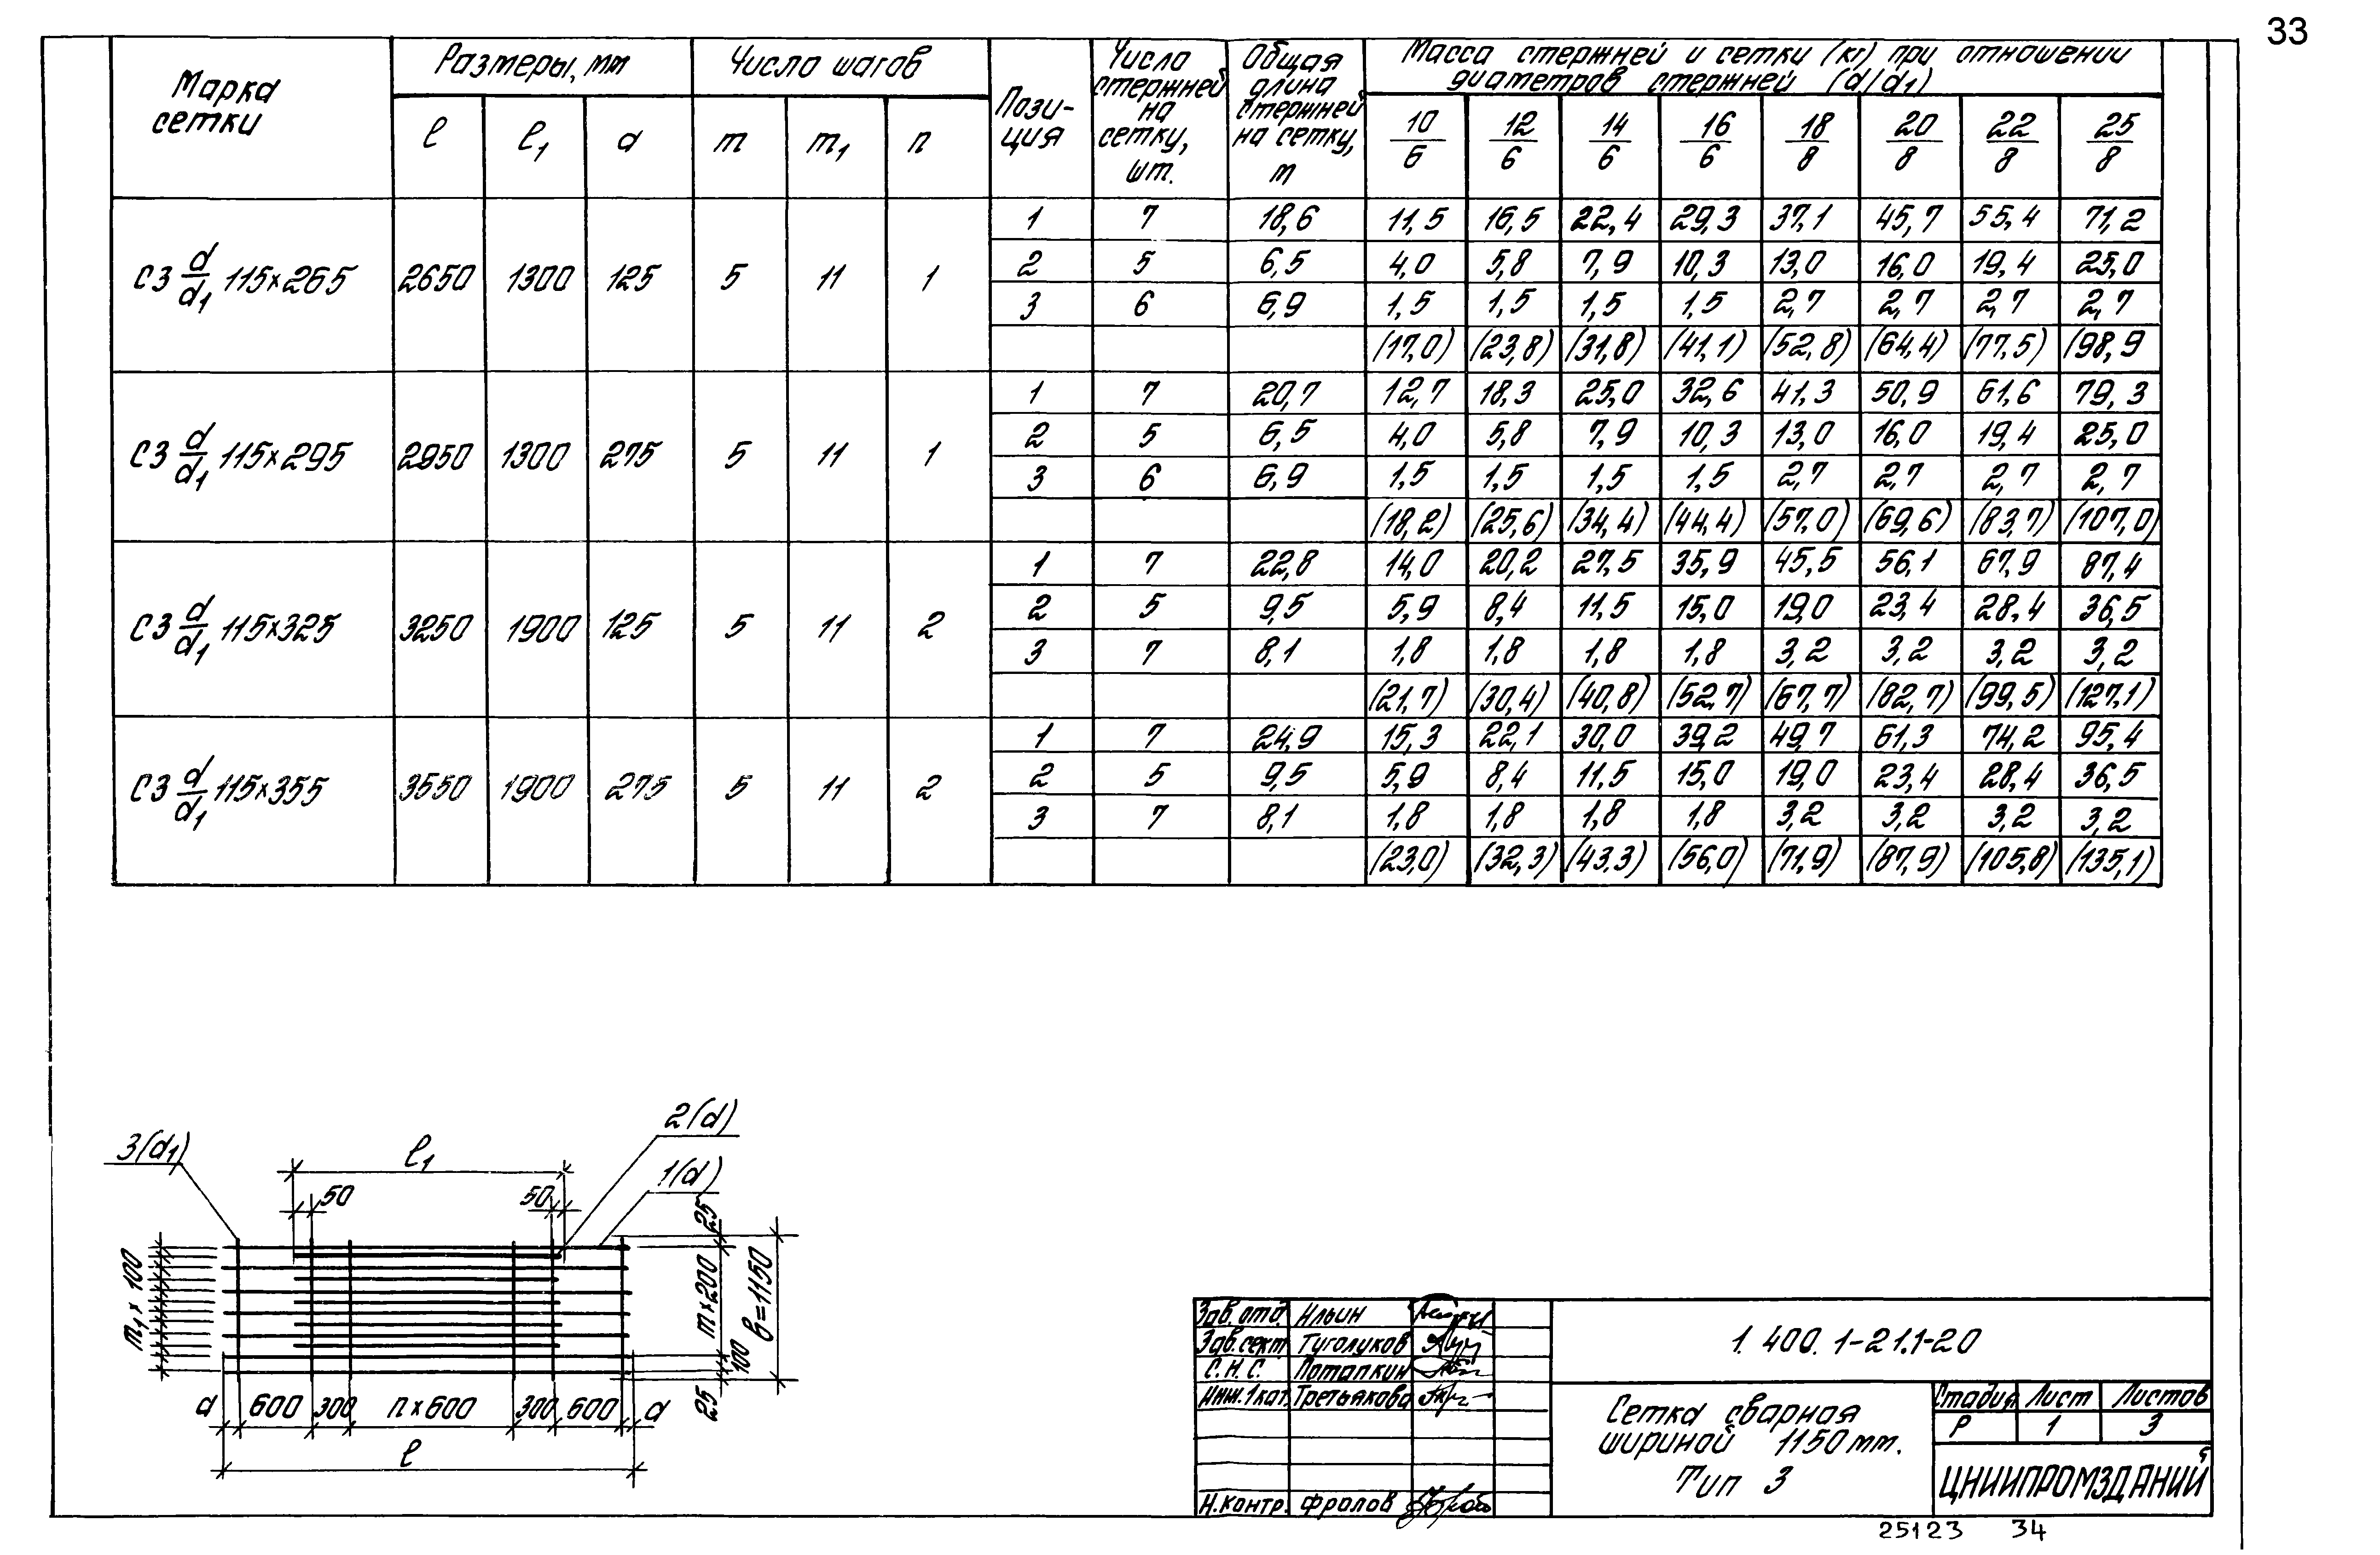 33
Марка сетки | Размеры, мм | Число шагов | Пози-ция | Число стержней на сетку, шт. | Общая длина стержней на сетку, м | Масса стержней и сетки (кг) при отношении диаметров стержней (d/d1)
l | l1 | a | m | m1 | n | 10/6 | 12/6 | 14/6 | 16/6 | 18/8 | 20/8 | 22/8 | 25/8
С3 d/d1 115×265 | 2650 | 1300 | 125 | 5 | 11 | 1
1 | 7 | 18,6 | 11,5 | 16,5 | 22,4 | 29,3 | 37,1 | 45,7 | 55,4 | 71,2
2 | 5 | 6,5 | 4,0 | 5,8 | 7,9 | 10,3 | 13,0 | 16,0 | 19,4 | 25,0
3 | 6 | 6,9 | 1,5 | 1,5 | 1,5 | 1,5 | 2,7 | 2,7 | 2,7 | 2,7
(17,0) | (23,8) | (31,8) | (41,1) | (52,8) | (64,4) | (77,5) | (98,9
С3 d/d1 115×295 | 2950 | 1300 | 275 | 5 | 11 | 1
1 | 7 | 20,7 | 12,7 | 18,3 | 25,0 | 32,6 | 41,3 | 50,9 | 61,6 | 79,3
2 | 5 | 6,5 | 4,0 | 5,8 | 7,9 | 10,3 | 13,0 | 16,0 | 19,4 | 25,0
3 | 6 | 6,9 | 1,5 | 1,5 | 1,5 | 1,5 | 2,7 | 2,7 | 2,7 | 2,7
(18,2) | (25,6) | (34,4) | (44,4) | (57,0) | (69,6) | (83,7) | (107,0)
С3 d/d1 115×325 | 3250 | 1900 | 125 | 5 | 11 | 2
1 | 7 | 22,8 | 14,0 | 20,2 | 27,5 | 35,9 | 45,5 | 56,1 | 67,9 | 87,4
2 | 5 | 9,5 | 5,9 | 8,4 | 11,5 | 15,0 | 19,0 | 23,4 | 28,4 | 36,5
3 | 7 | 8,1 | 1,8 | 1,8 | 1,8 | 1,8 | 3,2 | 3,2 | 3,2 | 3,2
(21,7) | (30,4) | (40,8) | (52,7) | (67,7) | (82,7) | (99,5) | (127,1)
С3 d/d1 115×355 | 3550 | 1900 | 275 | 5 | 11 | 2
1 | 7 | 24,9 | 15,3 | 22,1 | 30,0 | 39,2 | 49,7 | 61,3 | 74,2 | 95,4
2 | 5 | 9,5 | 5,9 | 8,4 | 11,5 | 15,0 | 19,0 | 23,4 | 28,4 | 36,5
3 | 7 | 8,1 | 1,8 | 1,8 | 1,8 | 1,8 | 3,2 | 3,2 | 3,2 | 3,2
(23,0) | (32,3) | (43,3) | (56,0) | (71,9) | (87,9) | (105,8) | (135,1)
3(d1)
l1
2(d)
1(d)
50
50
25
m1×100
m×200
в=1150
100
25
a 600 300 n×600 300 600 a
l
Зав.отд. Ильин
Зав.сект Туголуков
С.Н.С. Потапкин
Инж.1кат. Третьякова
Н.контр. Фролов
1.400.1-21.1-20
Сетка сварная
шириной 1150 мм.
Тип 3
Стадия Лист Листов
Р 1 3
ЦНИИПРОМЗДАНИЙ
25123 34